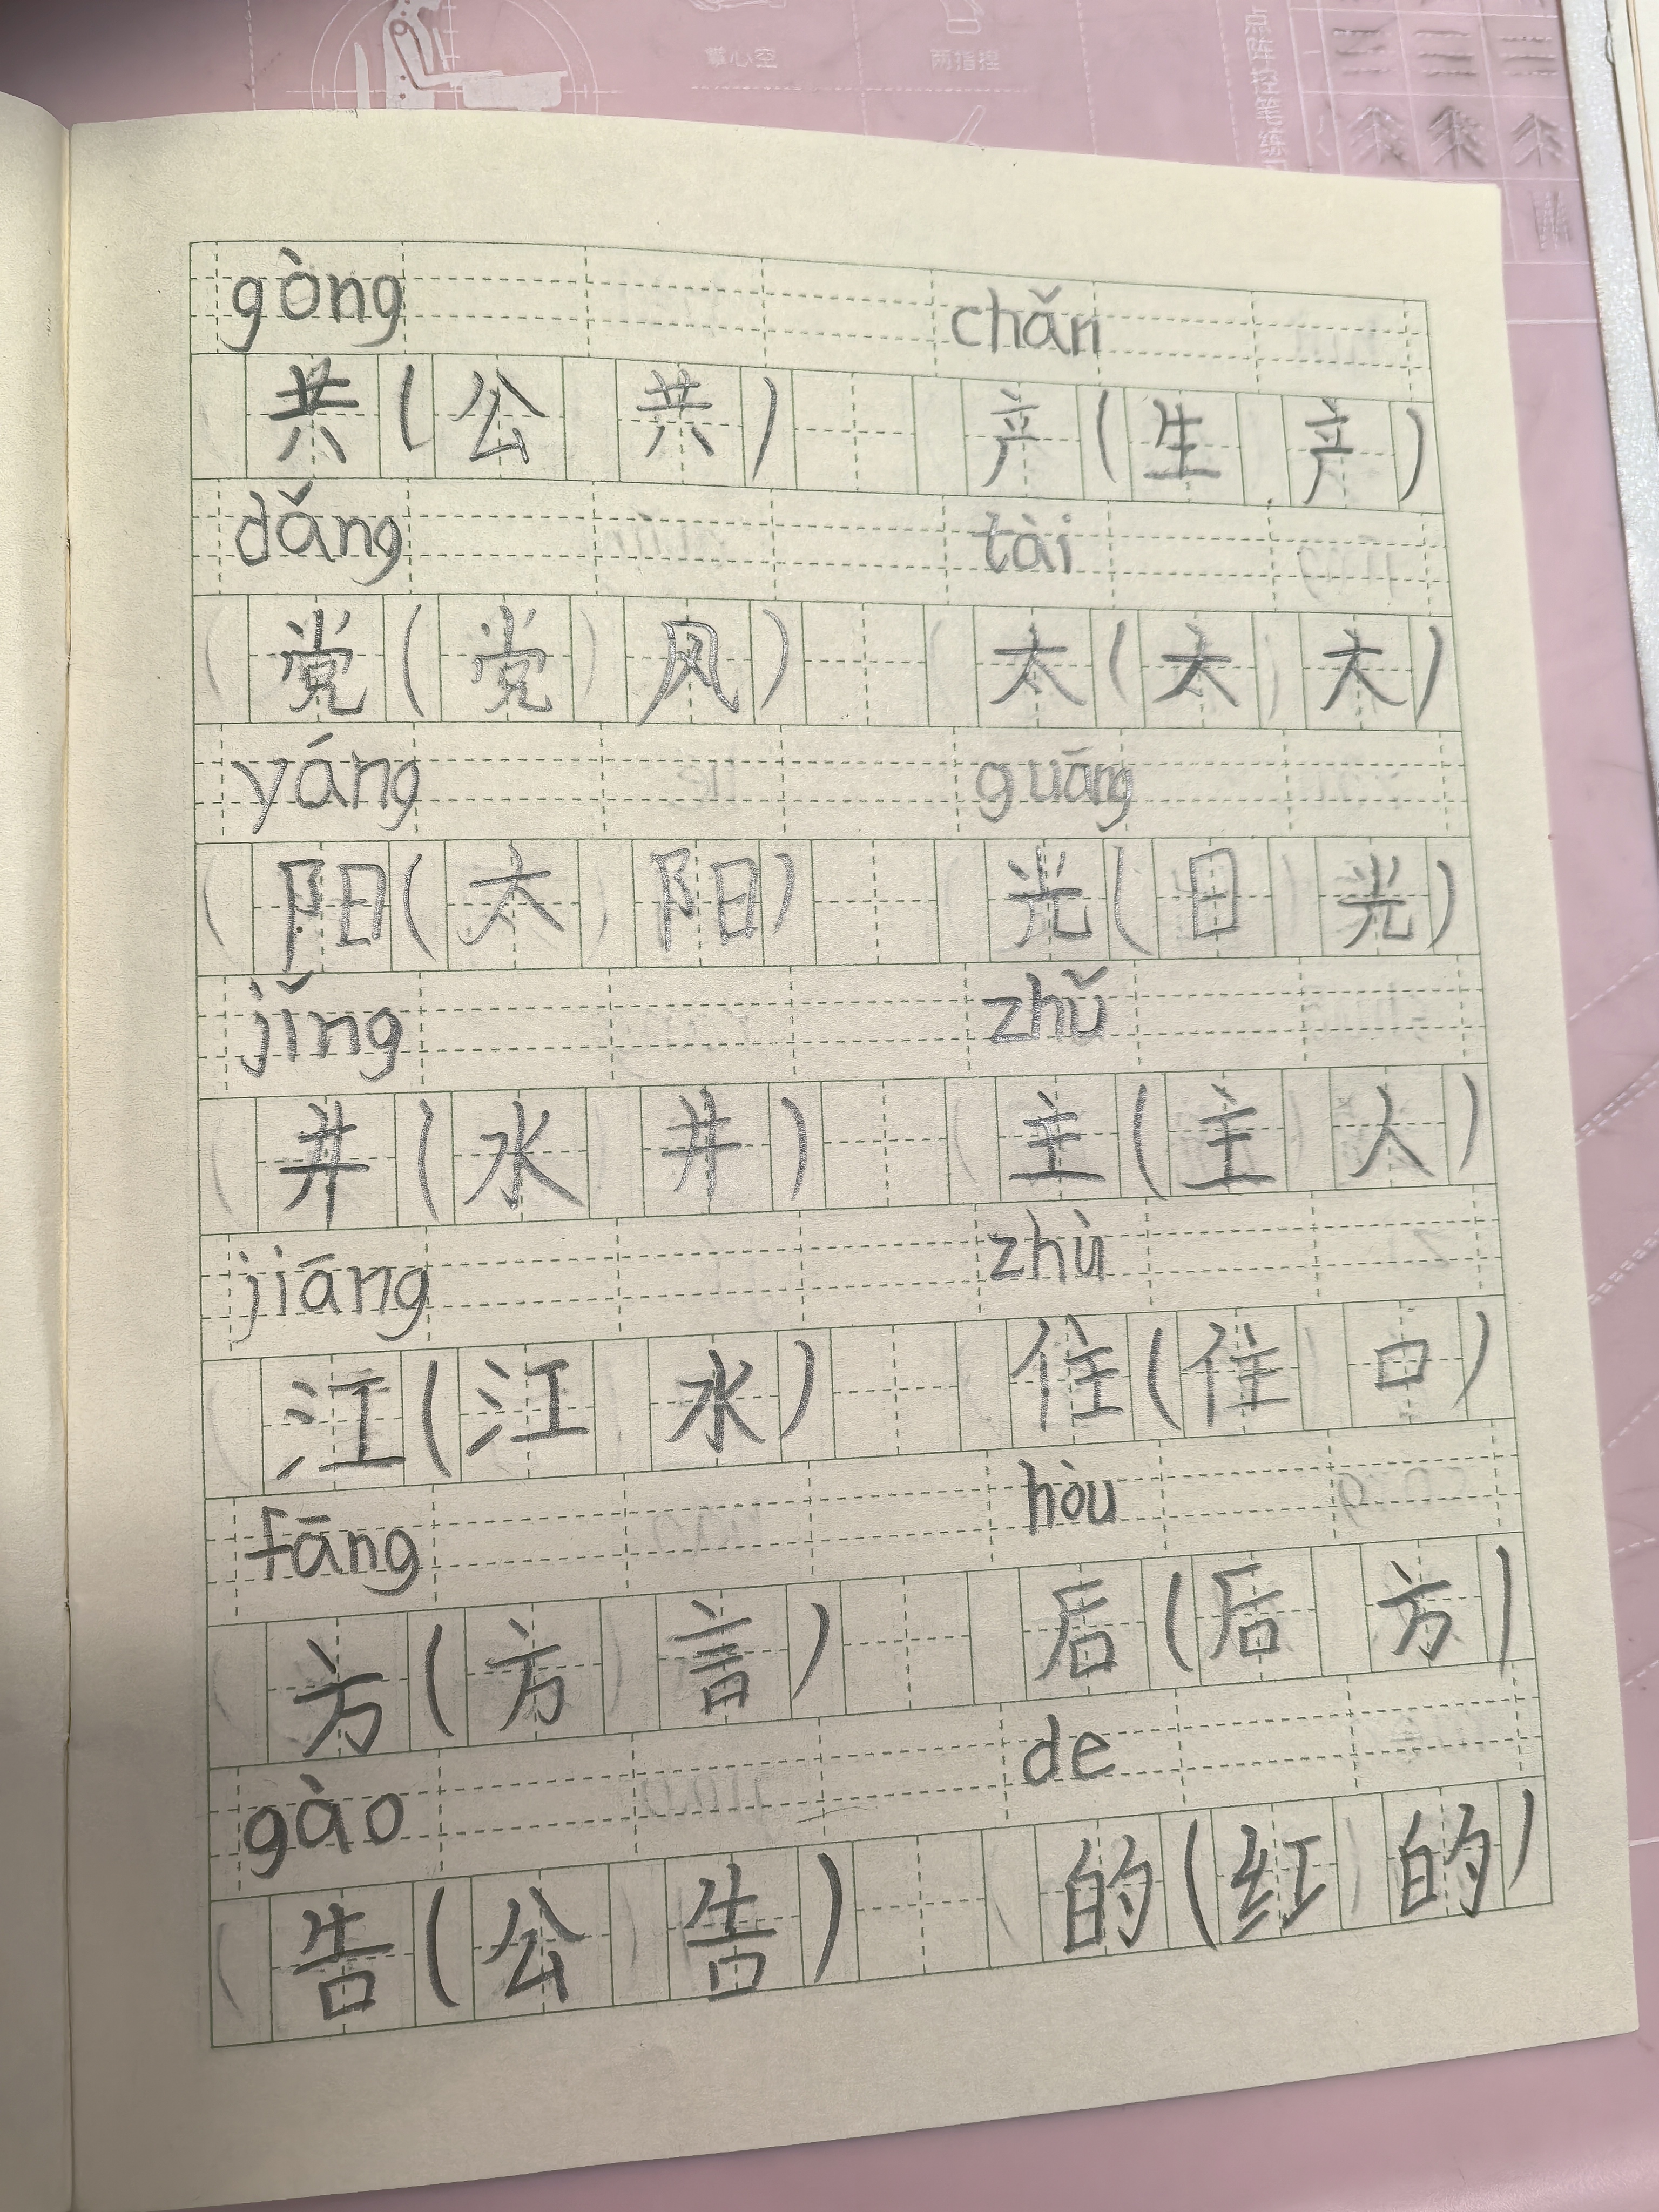 掌心空 两指捏
gòng chǎn
共(公共) 产(生产)
dǎng tài
党(党风) 太(太太)
yáng guāng
阳(太阳) 光(日光)
jǐng zhǔ
井(水井) 主(主人)
jiāng zhù
江(江水) 住(住口)
fāng hòu
方(方言) 后(后方)
gào de
告(公告) 的(红的)